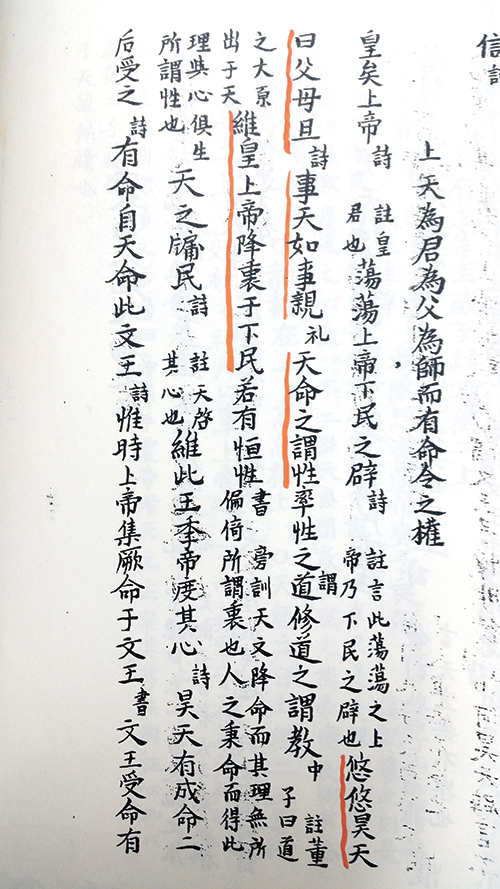 信
上天為君為父為師而有命令之權
皇矣上帝詩註皇君也蕩蕩上帝下民之辟詩註言此蕩蕩之上帝乃下民之辟也悠悠昊天
曰父母旦詩事天如事親礼天命之謂性率性之謂道修道之謂教中註董子曰道
之大原出于天維皇上帝降衷于下民若有恒性書旁訓天文降命而其理無所偏倚所謂衷也人之秉命而得此
理與心俱生所謂性也天之牖民詩註天啓其心也維此王季帝度其心詩昊天有成命二
后受之詩有命自天命此文王詩惟時上帝集厥命于文王書文王受命有